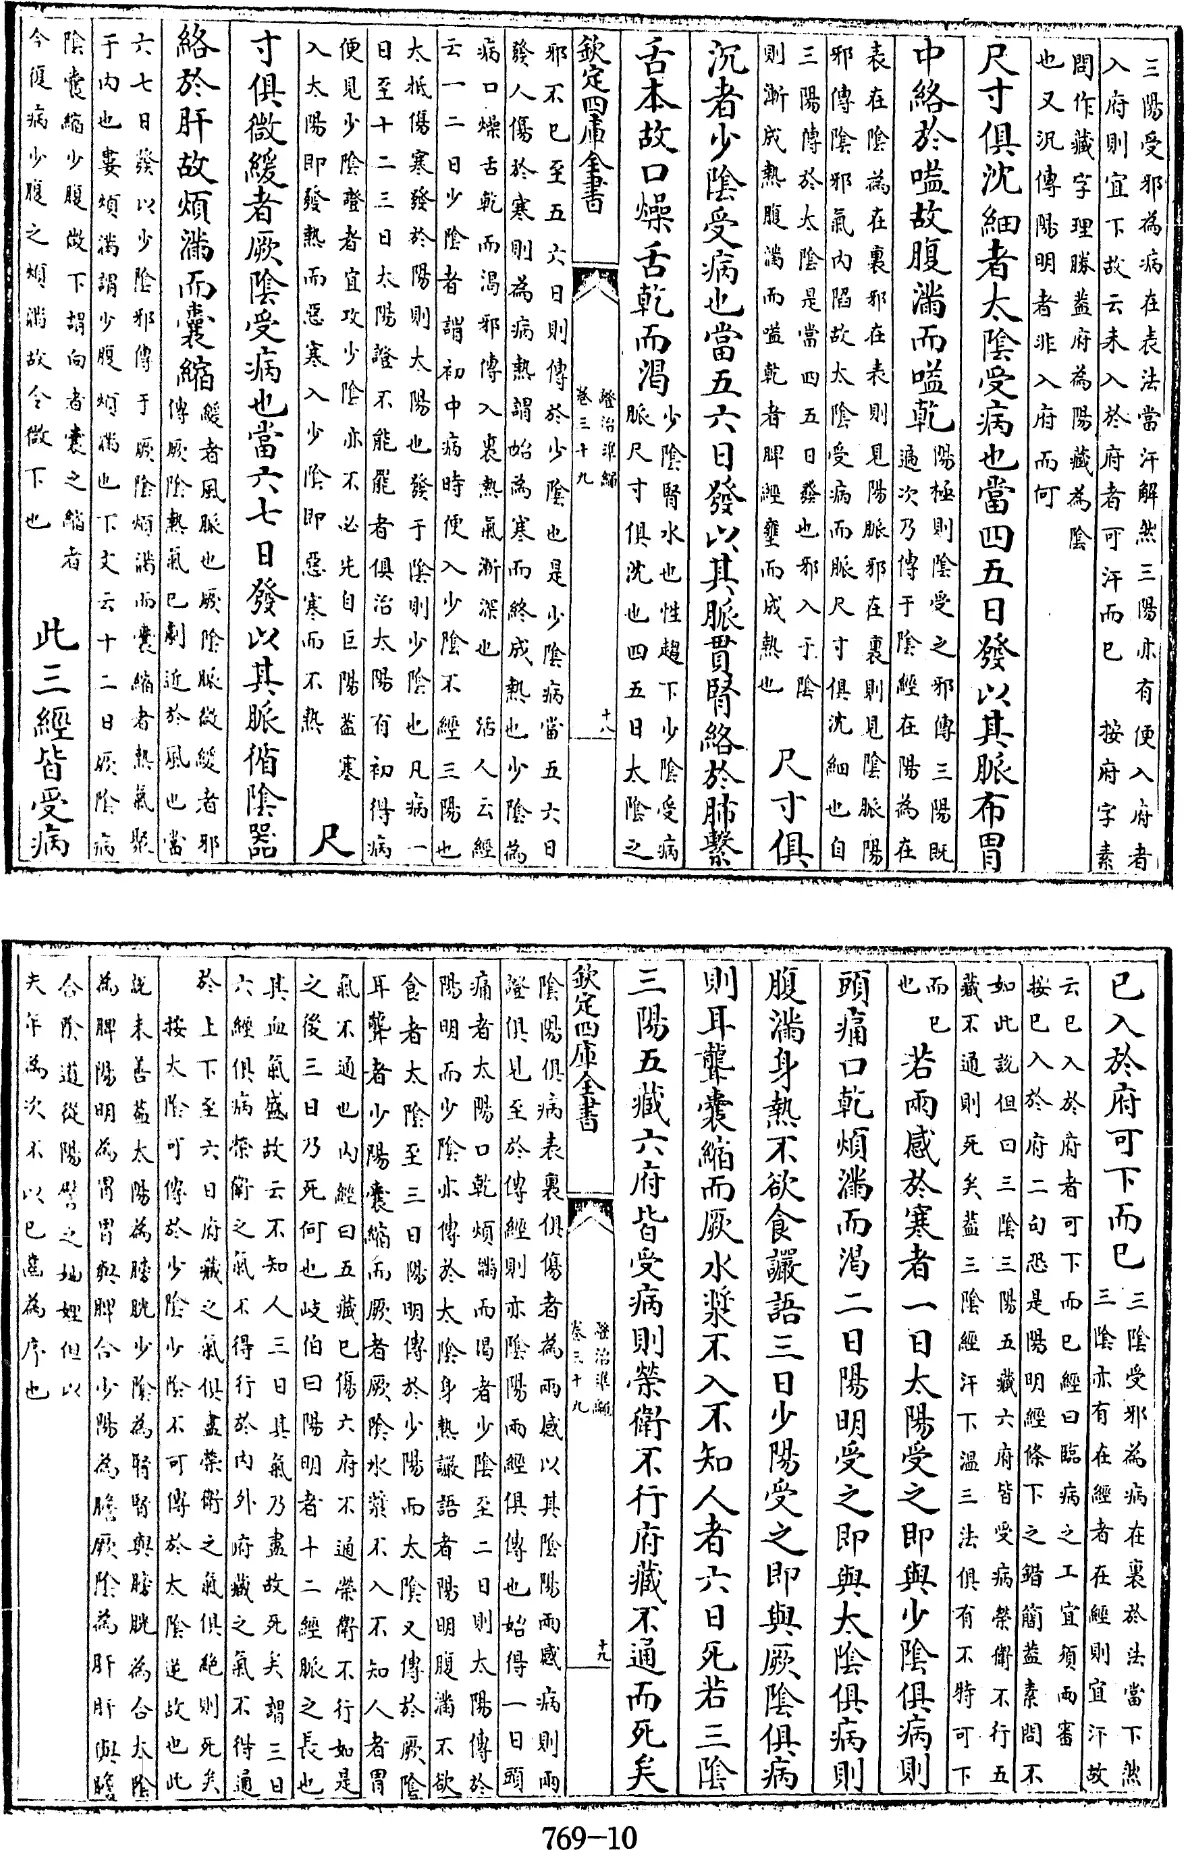 三陽受邪為病在表法當汗解然三陽亦有便入府者
入府則宜下故云未入於府者可汗而已 按府字素
問作藏字理勝蓋府為陽藏為陰
也又況傳陽明者非入府而何
尺寸俱沈細者太陰受病也當四五日發以其脈布胃
中絡於嗌故腹滿而嗌乾
陽極則陰受之邪傳三陽既
遍次乃傳于陰經在陽為在
表在陰為在裏邪在表則見陽脈邪在裏則見陰脈陽
邪傳陰邪氣内陷故太陰受病而脈尺寸俱沈細也自
三陽傳於太陰是當四五日發也邪入于陰
則漸成熱腹滿而嗌乾者脾經壅而成熱也
尺寸俱
沉者少陰受病也當五六日發以其脈貫腎絡於肺繫
舌本故口燥舌乾而渴
少陰腎水也性趨下少陰受病
脈尺寸俱沈也四五日太陰之
欽定四庫全書
證治準繩
卷三十九
十八
邪不已至五六日則傳於少陰也是少陰病當五六日
發人傷於寒則為病熱謂始為寒而終成熱也少陰為
病口燥舌乾而渴邪傳入裏熱氣漸深也 活人云經
云一二日少陰者謂初中病時便入少陰不經三陽也
太抵傷寒發於陽則太陽也發于陰則少陰也凡病一
日至十二三日太陽證不能罷者俱治太陽有初得病
便見少陰證者宜攻少陰亦不必先自巨陽蓋寒
入太陽即發熱而惡寒入少陰即惡寒而不熱
尺
寸俱微緩者厥陰受病也當六七日發以其脈循陰器
絡於肝故煩滿而囊縮
緩者風脈也厥陰脈微緩者邪
傳厥陰熱氣已劇近於風也當
六七日發以少陰邪傳于厥陰煩滿而囊縮者熱氣聚
于内也婁煩滿謂少腹煩滿也下文云十二日厥陰病
陰囊縮少腹微下謂向者囊之縮者
今復病少腹之煩滿故令微下也
此三經皆受病
已入於府可下而已
三陰受邪為病在裏於法當下然
三陰亦有在經者在經則宜汗故
云已入於府者可下而已經曰臨病之工宜須兩審
按已入於府二句恐是陽明經條下之錯簡蓋素問不
如此說但曰三陰三陽五藏六府皆受病榮衛不行五
藏不通則死矣蓋三陰經汗下溫三法俱有不特可下
而已
也
若兩感於寒者一日太陽受之即與少陰俱病則
頭痛口乾煩滿而渴二日陽明受之即與太陰俱病則
腹滿身熱不欲食讝語三日少陽受之即與厥陰俱病
則耳聾囊縮而厥水漿不入不知人者六日死若三陰
三陽五藏六府皆受病則榮衛不行府藏不通而死矣
欽定四庫全書
證治準繩
卷三十九
十九
陰陽俱病表裏俱傷者為兩感以其陰陽兩感病則兩
證俱見至於傳經則亦陰陽兩經俱傳也始得一日頭
痛者太陽口乾煩滿而渴者少陰至二日則太陽傳於
陽明而少陰亦傳於太陰身熱讝語者陽明腹滿不欲
食者太陰至三日陽明傳於少陽而太陰又傳於厥陰
耳聾者少陽囊縮而厥者厥陰水漿不入不知人者胃
氣不通也内經曰五藏已傷六府不通榮衛不行如是
之後三日乃死何也岐伯曰陽明者十二經脈之長也
其血氣盛故云不知人三日其氣乃盡故死矣謂三日
六經俱病榮衛之氣不得行於内外府藏之氣不得通
於上下至六日府藏之氣俱盡榮衛之氣俱絶則死矣
按太陰可傳於少陰少陰不可傳於太陰逆故也此
說未善蓋太陽為膀胱少陰為腎腎與膀胱為合太陰
為脾陽明為胃胃與脾合少陽為膽厥陰為肝肝與膽
合陰道從陽譬之妯娌但以
夫年為次不以已齒為序也
769-10